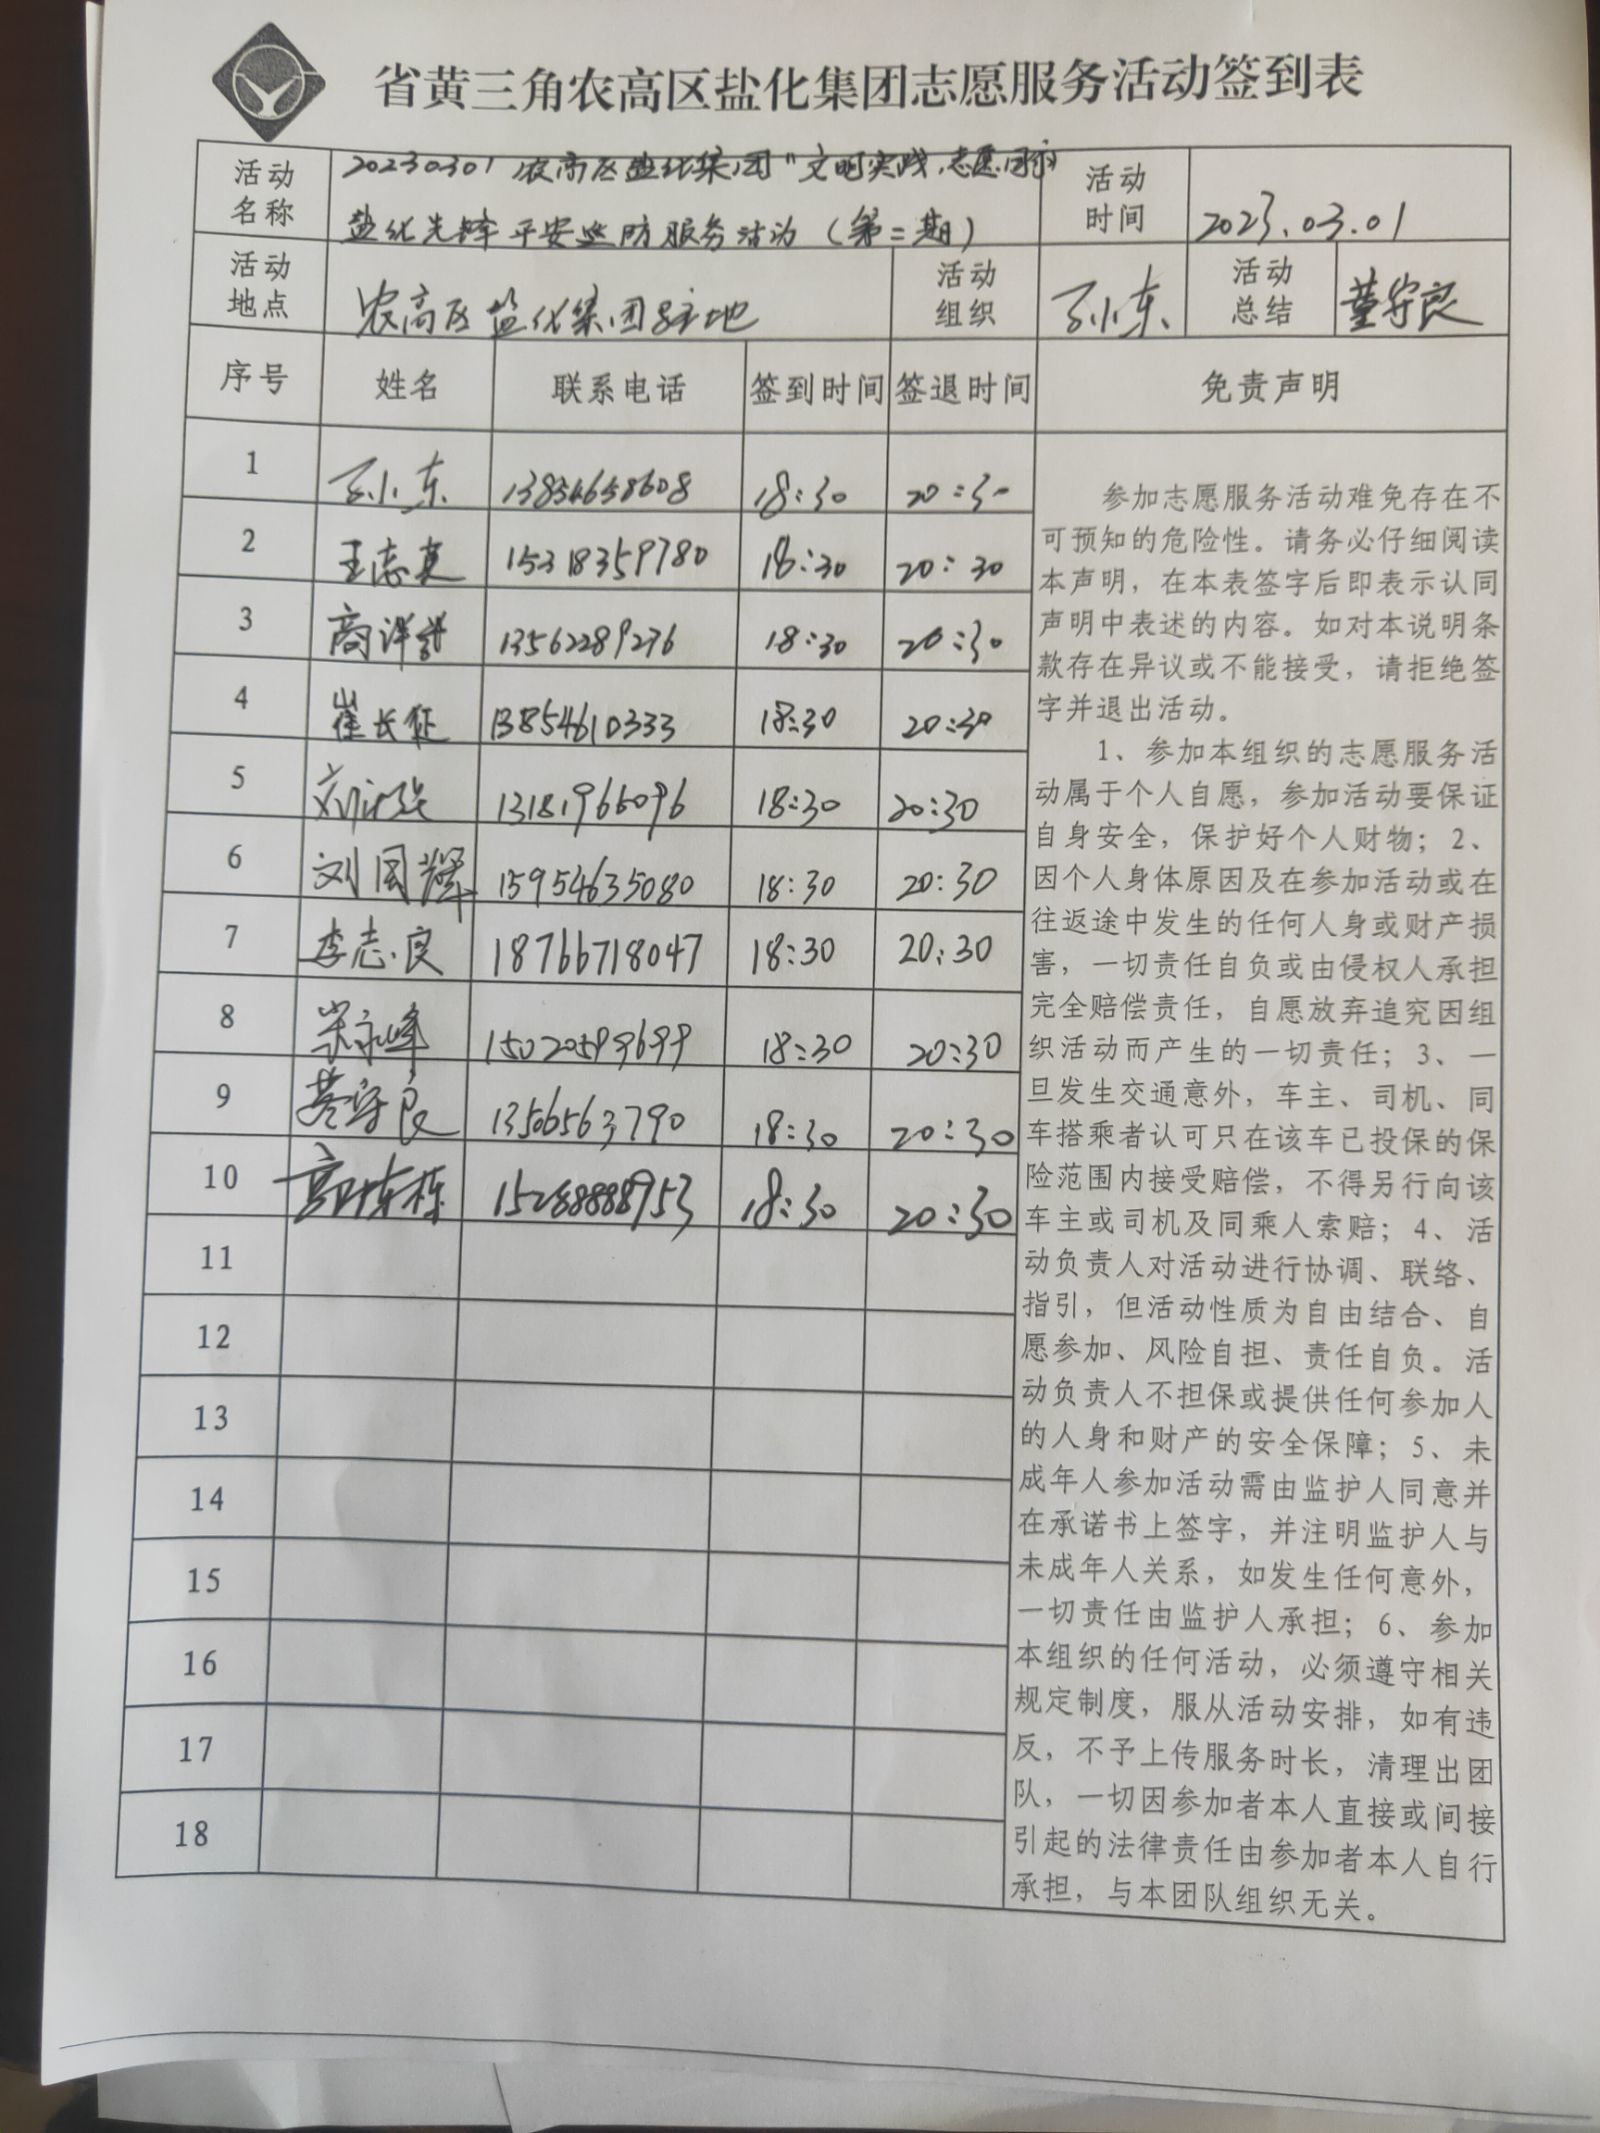 省黄三角农高区盐化集团志愿服务活动签到表
活动名称 20230301 农高区盐化集团"文明实践,志愿同行"
盐化先锋平安巡防服务活动（第二期） 活动时间 2023.03.01
活动地点 农高区盐化集团驻地 活动组织 孙小东 活动总结 董守良
序号 姓名 联系电话 签到时间 签退时间 免责声明
1 孙小东 13854658608 18:30 20:30
2 王志真 15318359780 18:30 20:30
3 商洋 13562289276 18:30 20:30
4 崔长征 13854610333 18:30 20:30
5 刘 13181966096 18:30 20:30
6 刘国辉 15954635080 18:30 20:30
7 李志良 18766718047 18:30 20:30
8 永峰 15020599699 18:30 20:30
9 董守良 13565563790 18:30 20:30
10 栋 15288888953 18:30 20:30
11
12
13
14
15
16
17
18
参加志愿服务活动难免存在不
可预知的危险性。请务必仔细阅读
本声明，在本表签字后即表示认同
声明中表述的内容。如对本说明条
款存在异议或不能接受，请拒绝签
字并退出活动。
1、参加本组织的志愿服务活
动属于个人自愿，参加活动要保证
自身安全，保护好个人财物；2、
因个人身体原因及在参加活动或在
往返途中发生的任何人身或财产损
害，一切责任自负或由侵权人承担
完全赔偿责任，自愿放弃追究因组
织活动而产生的一切责任；3、一
旦发生交通意外，车主、司机、同
车搭乘者认可只在该车已投保的保
险范围内接受赔偿，不得另行向该
车主或司机及同乘人索赔；4、活
动负责人对活动进行协调、联络、
指引，但活动性质为自由结合、自
愿参加、风险自担、责任自负。活
动负责人不担保或提供任何参加人
的人身和财产的安全保障；5、未
成年人参加活动需由监护人同意并
在承诺书上签字，并注明监护人与
未成年人关系，如发生任何意外，
一切责任由监护人承担；6、参加
本组织的任何活动，必须遵守相关
规定制度，服从活动安排，如有违
反，不予上传服务时长，清理出团
队，一切因参加者本人直接或间接
引起的法律责任由参加者本人自行
承担，与本团队组织无关。